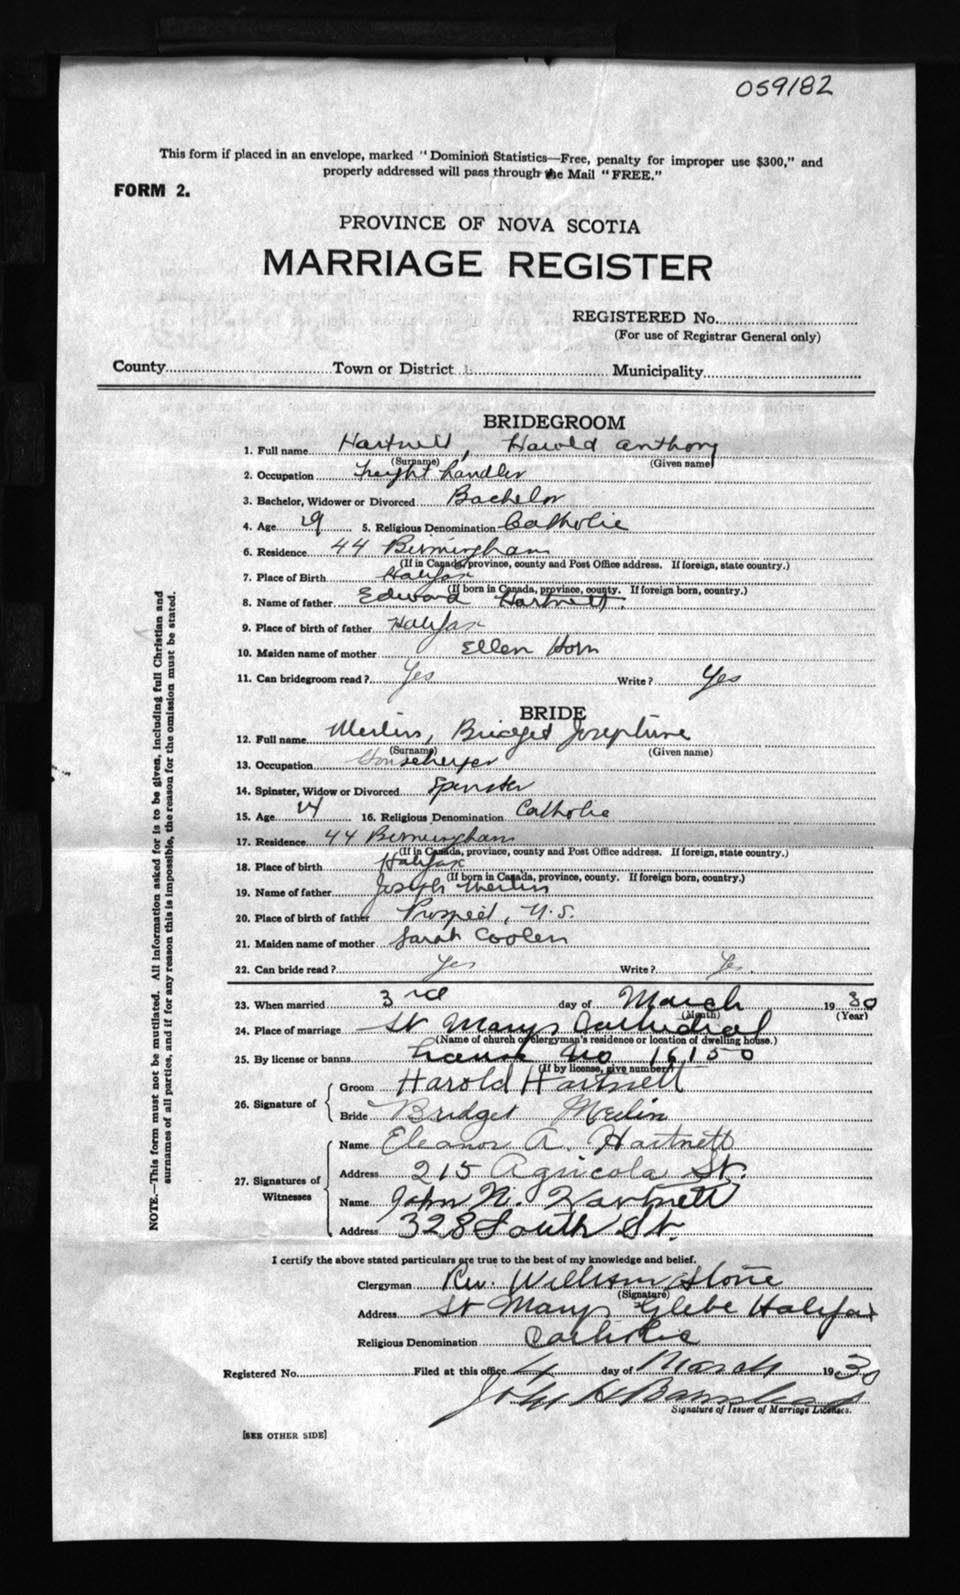 059182
This form if placed in an envelope, marked "Dominion Statistics—Free, penalty for improper use $300," and
properly addressed will pass through the Mail "FREE."
FORM 2.
PROVINCE OF NOVA SCOTIA
MARRIAGE REGISTER
REGISTERED No.
(For use of Registrar General only)
County Town or District Municipality
BRIDEGROOM
1. Full name Hartnett, Harold Anthony
(Surname) (Given name)
2. Occupation Freight handler
3. Bachelor, Widower or Divorced Bachelor
4. Age 5. Religious Denomination Catholic
6. Residence 44 Birmingham
(If in Canada, province, county and Post Office address. If foreign, state country.)
7. Place of Birth Halifax
(If born in Canada, province, county. If foreign born, country.)
8. Name of father Edward Hartnett.
9. Place of birth of father Halifax
10. Maiden name of mother Ellen Horn
11. Can bridegroom read? Yes Write? Yes
BRIDE
12. Full name Meilin, Bridget Josephine
(Surname) (Given name)
13. Occupation Housekeeper
14. Spinster, Widow or Divorced Spinster
15. Age 16. Religious Denomination Catholic
17. Residence 44 Birmingham
(If in Canada, province, county and Post Office address. If foreign, state country.)
18. Place of birth Halifax
(If born in Canada, province, county. If foreign born, country.)
19. Name of father Joseph Meilin
20. Place of birth of father Prospect, N.S.
21. Maiden name of mother Sarah Coolen
22. Can bride read? Yes Write? Yes.
23. When married 3rd day of March 1930
(Month) (Year)
24. Place of marriage St Marys Cathedral
(Name of church or clergyman's residence or location of dwelling house.)
25. By license or banns License No 16150
(If by license, give number)
26. Signature of
Groom Harold Hartnett
Bride Bridget Meilin
27. Signatures of Witnesses
Name Eleanor A. Hartnett
Address 215 Agricola St.
Name John N. Hartnett
Address 328 South St.
I certify the above stated particulars are true to the best of my knowledge and belief.
Clergyman Rev. William Stone
(Signature)
Address St Marys Glebe Halifax
Religious Denomination Catholic
Registered No. Filed at this office 4 day of March 1930
John H Barnstead
Signature of Issuer of Marriage Licenses.
[SEE OTHER SIDE]
NOTE.—This form must not be mutilated. All information asked for is to be given, including full Christian and
surnames of all parties, and if for any reason this is impossible, the reason for the omission must be stated.